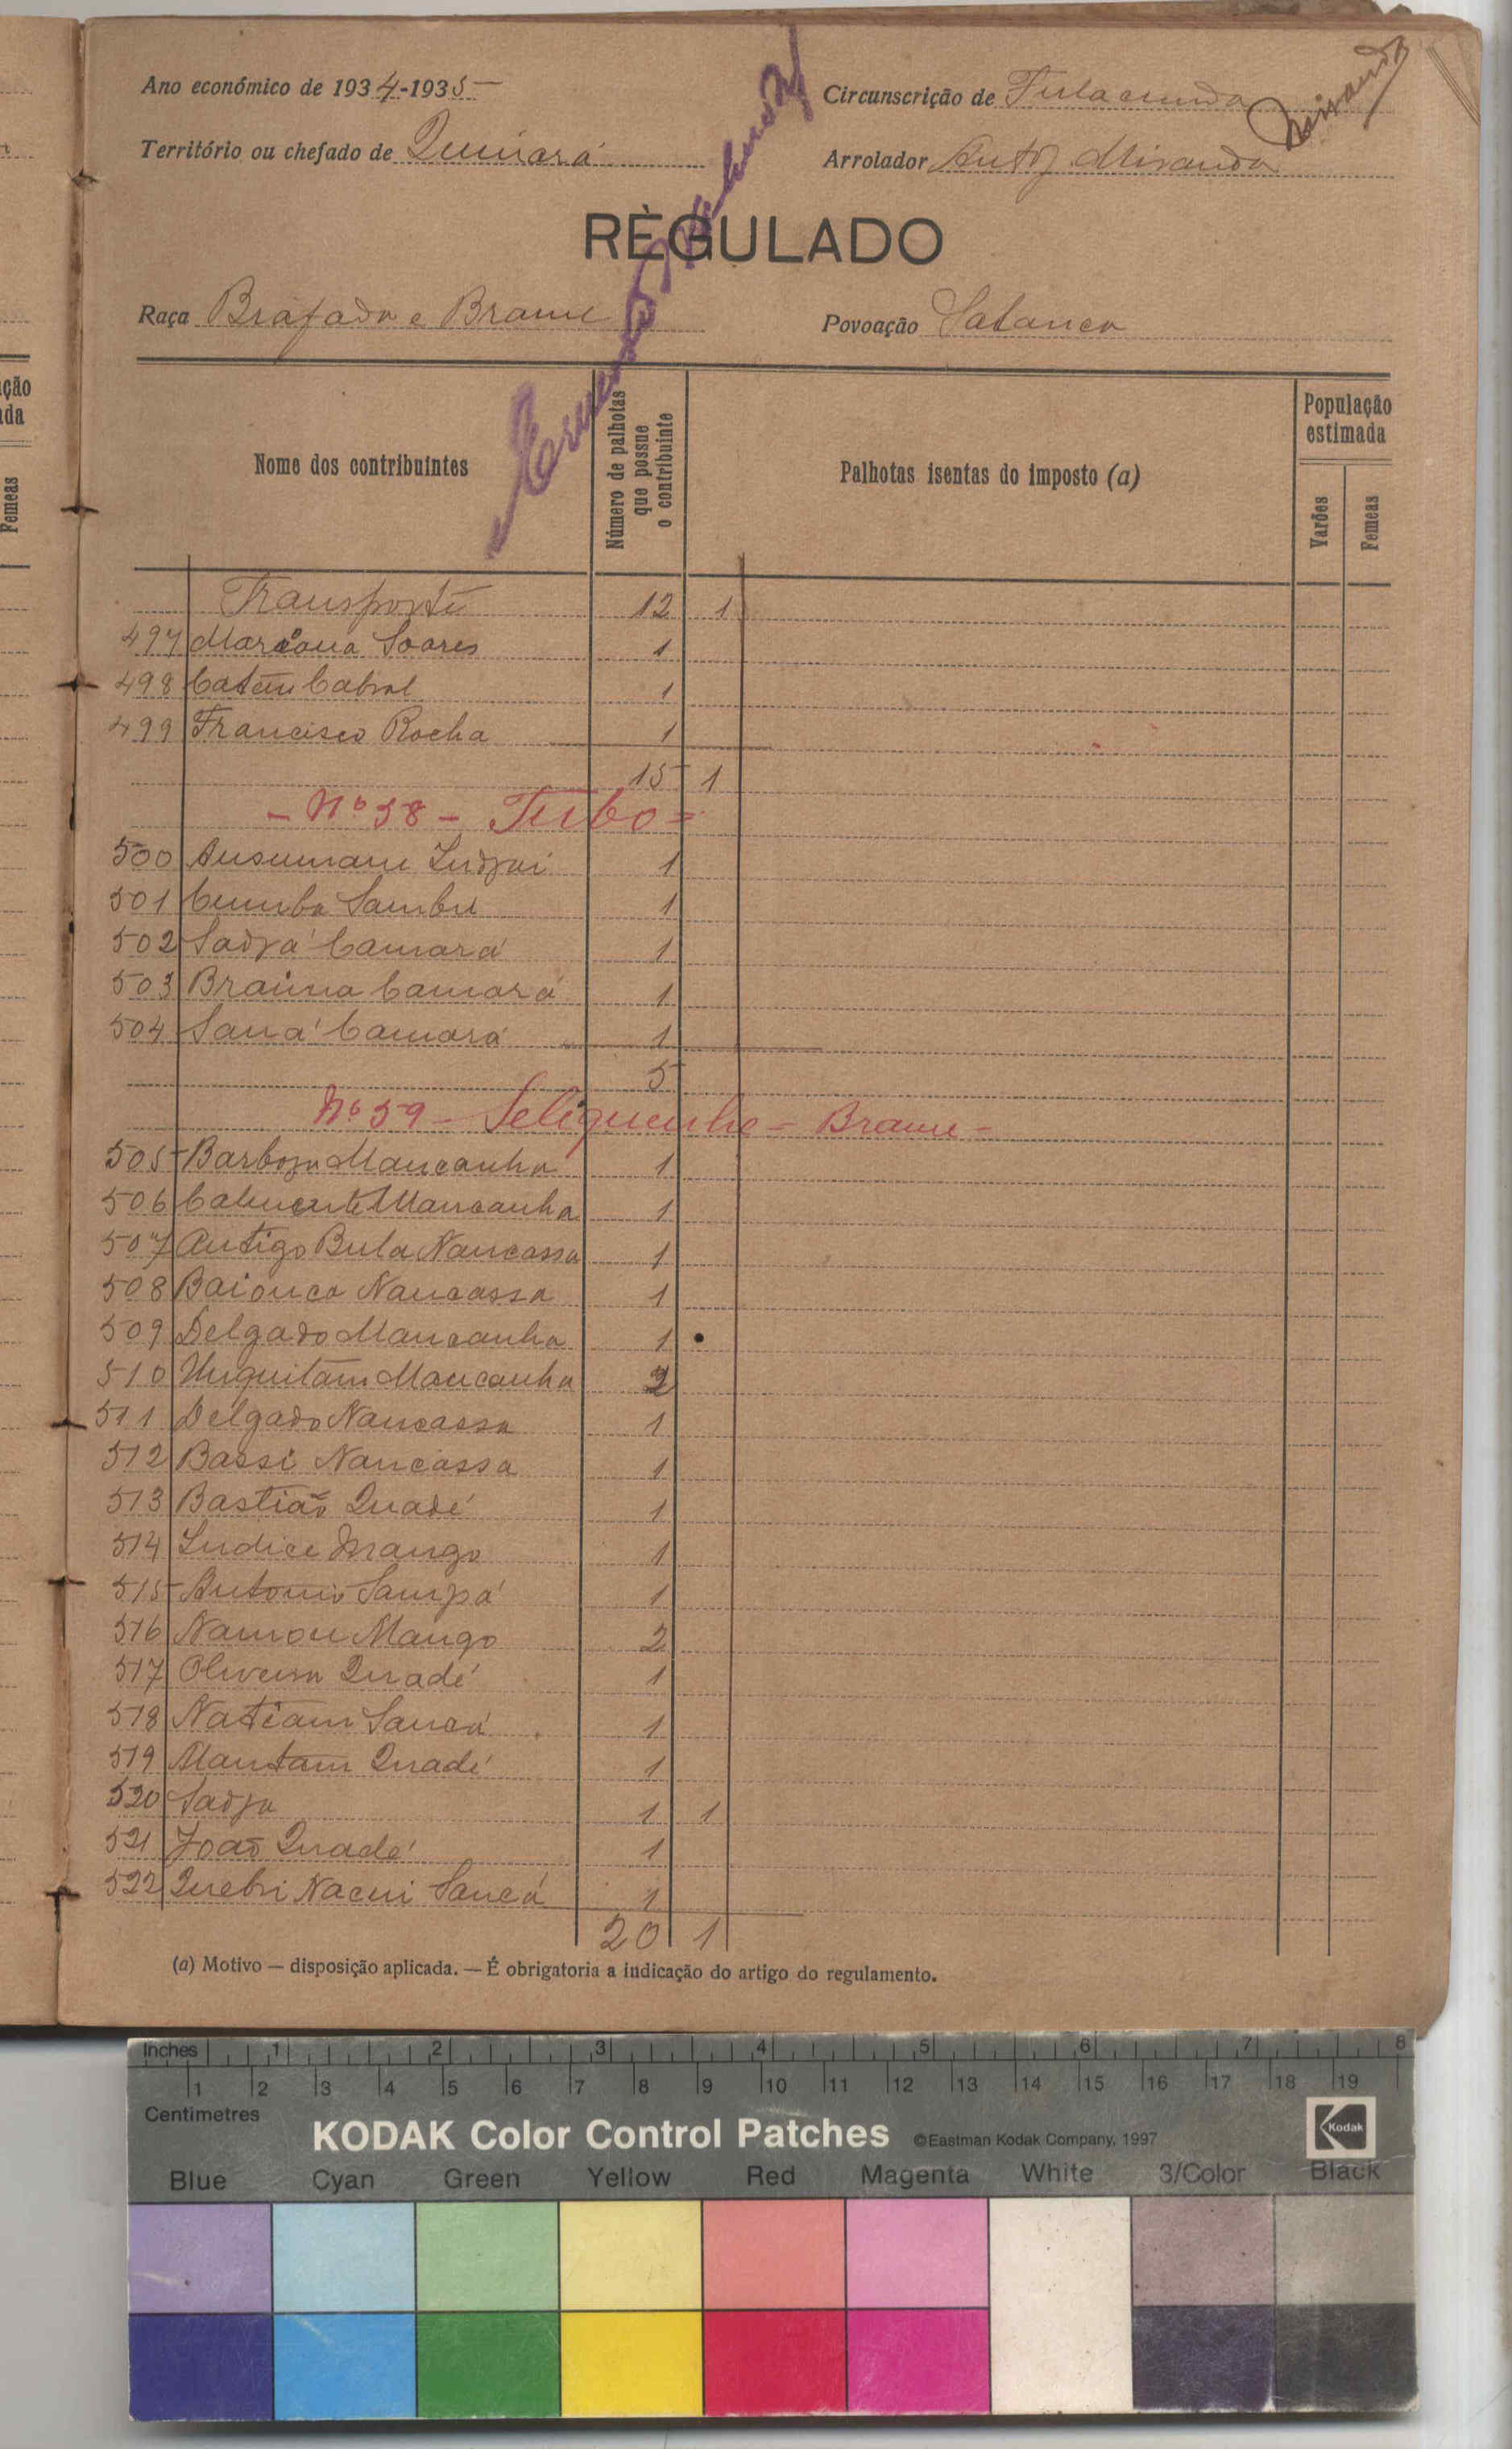 Ano económico de 1934-1935
Circunscrição de Fulacunda
Miranda
Território ou chefado de Quinará
Arrolador Antº J. Miranda
RÈGULADO
Raça Biafada e Brame
Povoação
Nome dos contribuintes
Número de palhotas que possue o contribuinte
Palhotas isentas do imposto (a)
População estimada
Varões
Femeas
ção
da
Femeas
Transporte 12 1
497 Mariana Soares 1
498 Cabral 1
499 Francisco Rocha 1
15 1
- Nº 58 - Tubo =
500 Ansumane Indjai 1
501 Cumba Sambu 1
502 Sadjá Camará 1
503 Braima Camará 1
504 Saná Camará 1
5
Nº 59 - - Brame -
505 Barboza Mancanha 1
506 Mancanha 1
507 Antigo Bula Nancassa 1
508 Baionca Nancassa 1
509 Delgado Mancanha 1
510 Mancanha 2
511 Delgado Nancassa 1
512 Bassi Nancassa 1
513 Bastião Quadé 1
514 Mango 1
515 Antonio Sampá 1
516 Mango 2
517 Oliveira Quadé 1
518 Natiam Sancá 1
519 Quadé 1
520 Sadja 1 1
521 João Quadé 1
522 Quebri Nacui Sancá 1
20 1
(a) Motivo — disposição aplicada. — É obrigatoria a indicação do artigo do regulamento.
Inches 1 2 3 4 5 6 7 8
1 2 3 4 5 6 7 8 9 10 11 12 13 14 15 16 17 18 19
Centimetres
KODAK Color Control Patches ©Eastman Kodak Company, 1997 Kodak
Blue Cyan Green Yellow Red Magenta White 3/Color Black